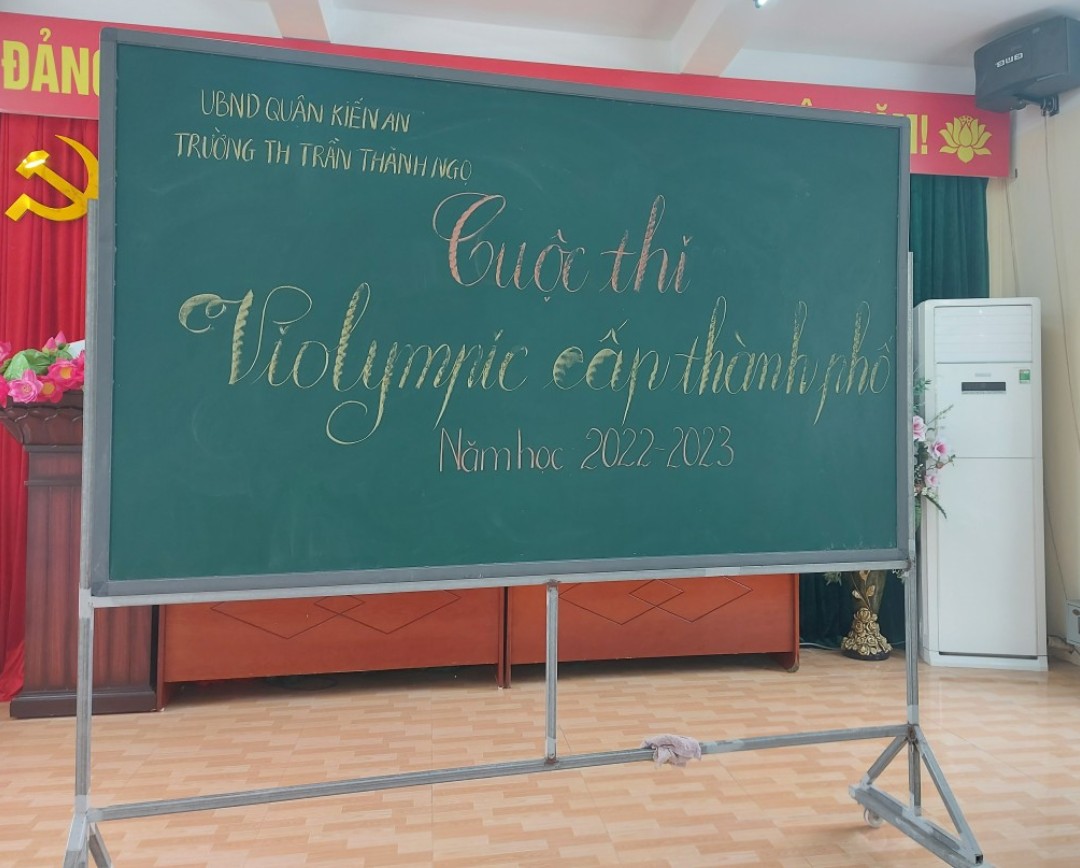 ĐẢNG
UBND QUẬN KIẾN AN
TRƯỜNG TH TRẦN THÀNH NGỌ
Cuộc thi
Violympic cấp thành phố
Năm học 2022-2023
BMB